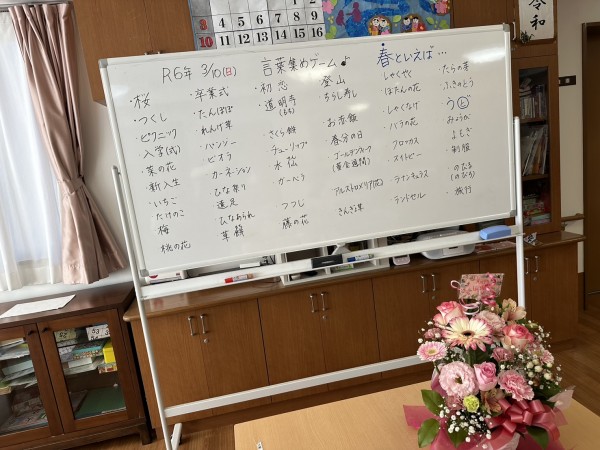 R6年 3/10(日) 言葉集めゲーム♪ 春といえば…
・桜
・つくし
・ピクニック
・入学(式)
・菜の花
・新入生
・いちご
・たけのこ
・梅
・桃の花
・卒業式
・たんぽぽ
・れんげ草
・パンジー
・ビオラ
・カーネーション
・ひな祭り
・遠足
・ひなあられ
・草餅
・初恋
・道明寺
(もち)
・さくら餅
・チューリップ
・水仙
・ガーベラ
・つつじ
・藤の花
・登山
・ちらし寿し
・お赤飯
・春分の日
・ゴールデンウィーク
(黄金週間)
・アルストロメリア(花)
・さんさい
・しゃくやく
・ぼたんの花
・しゃくなげ
・バラの花
・フロックス
・スイトピー
・ラナンキュラス
・ランドセル
・たらの芽
・ふきのとう
・うど
・みょうが
・よもぎ
・制服
・のびる
(のびろ)
・旅行
3
4 5 6 7 8 9
10 11 12 13 14 15 16
令和